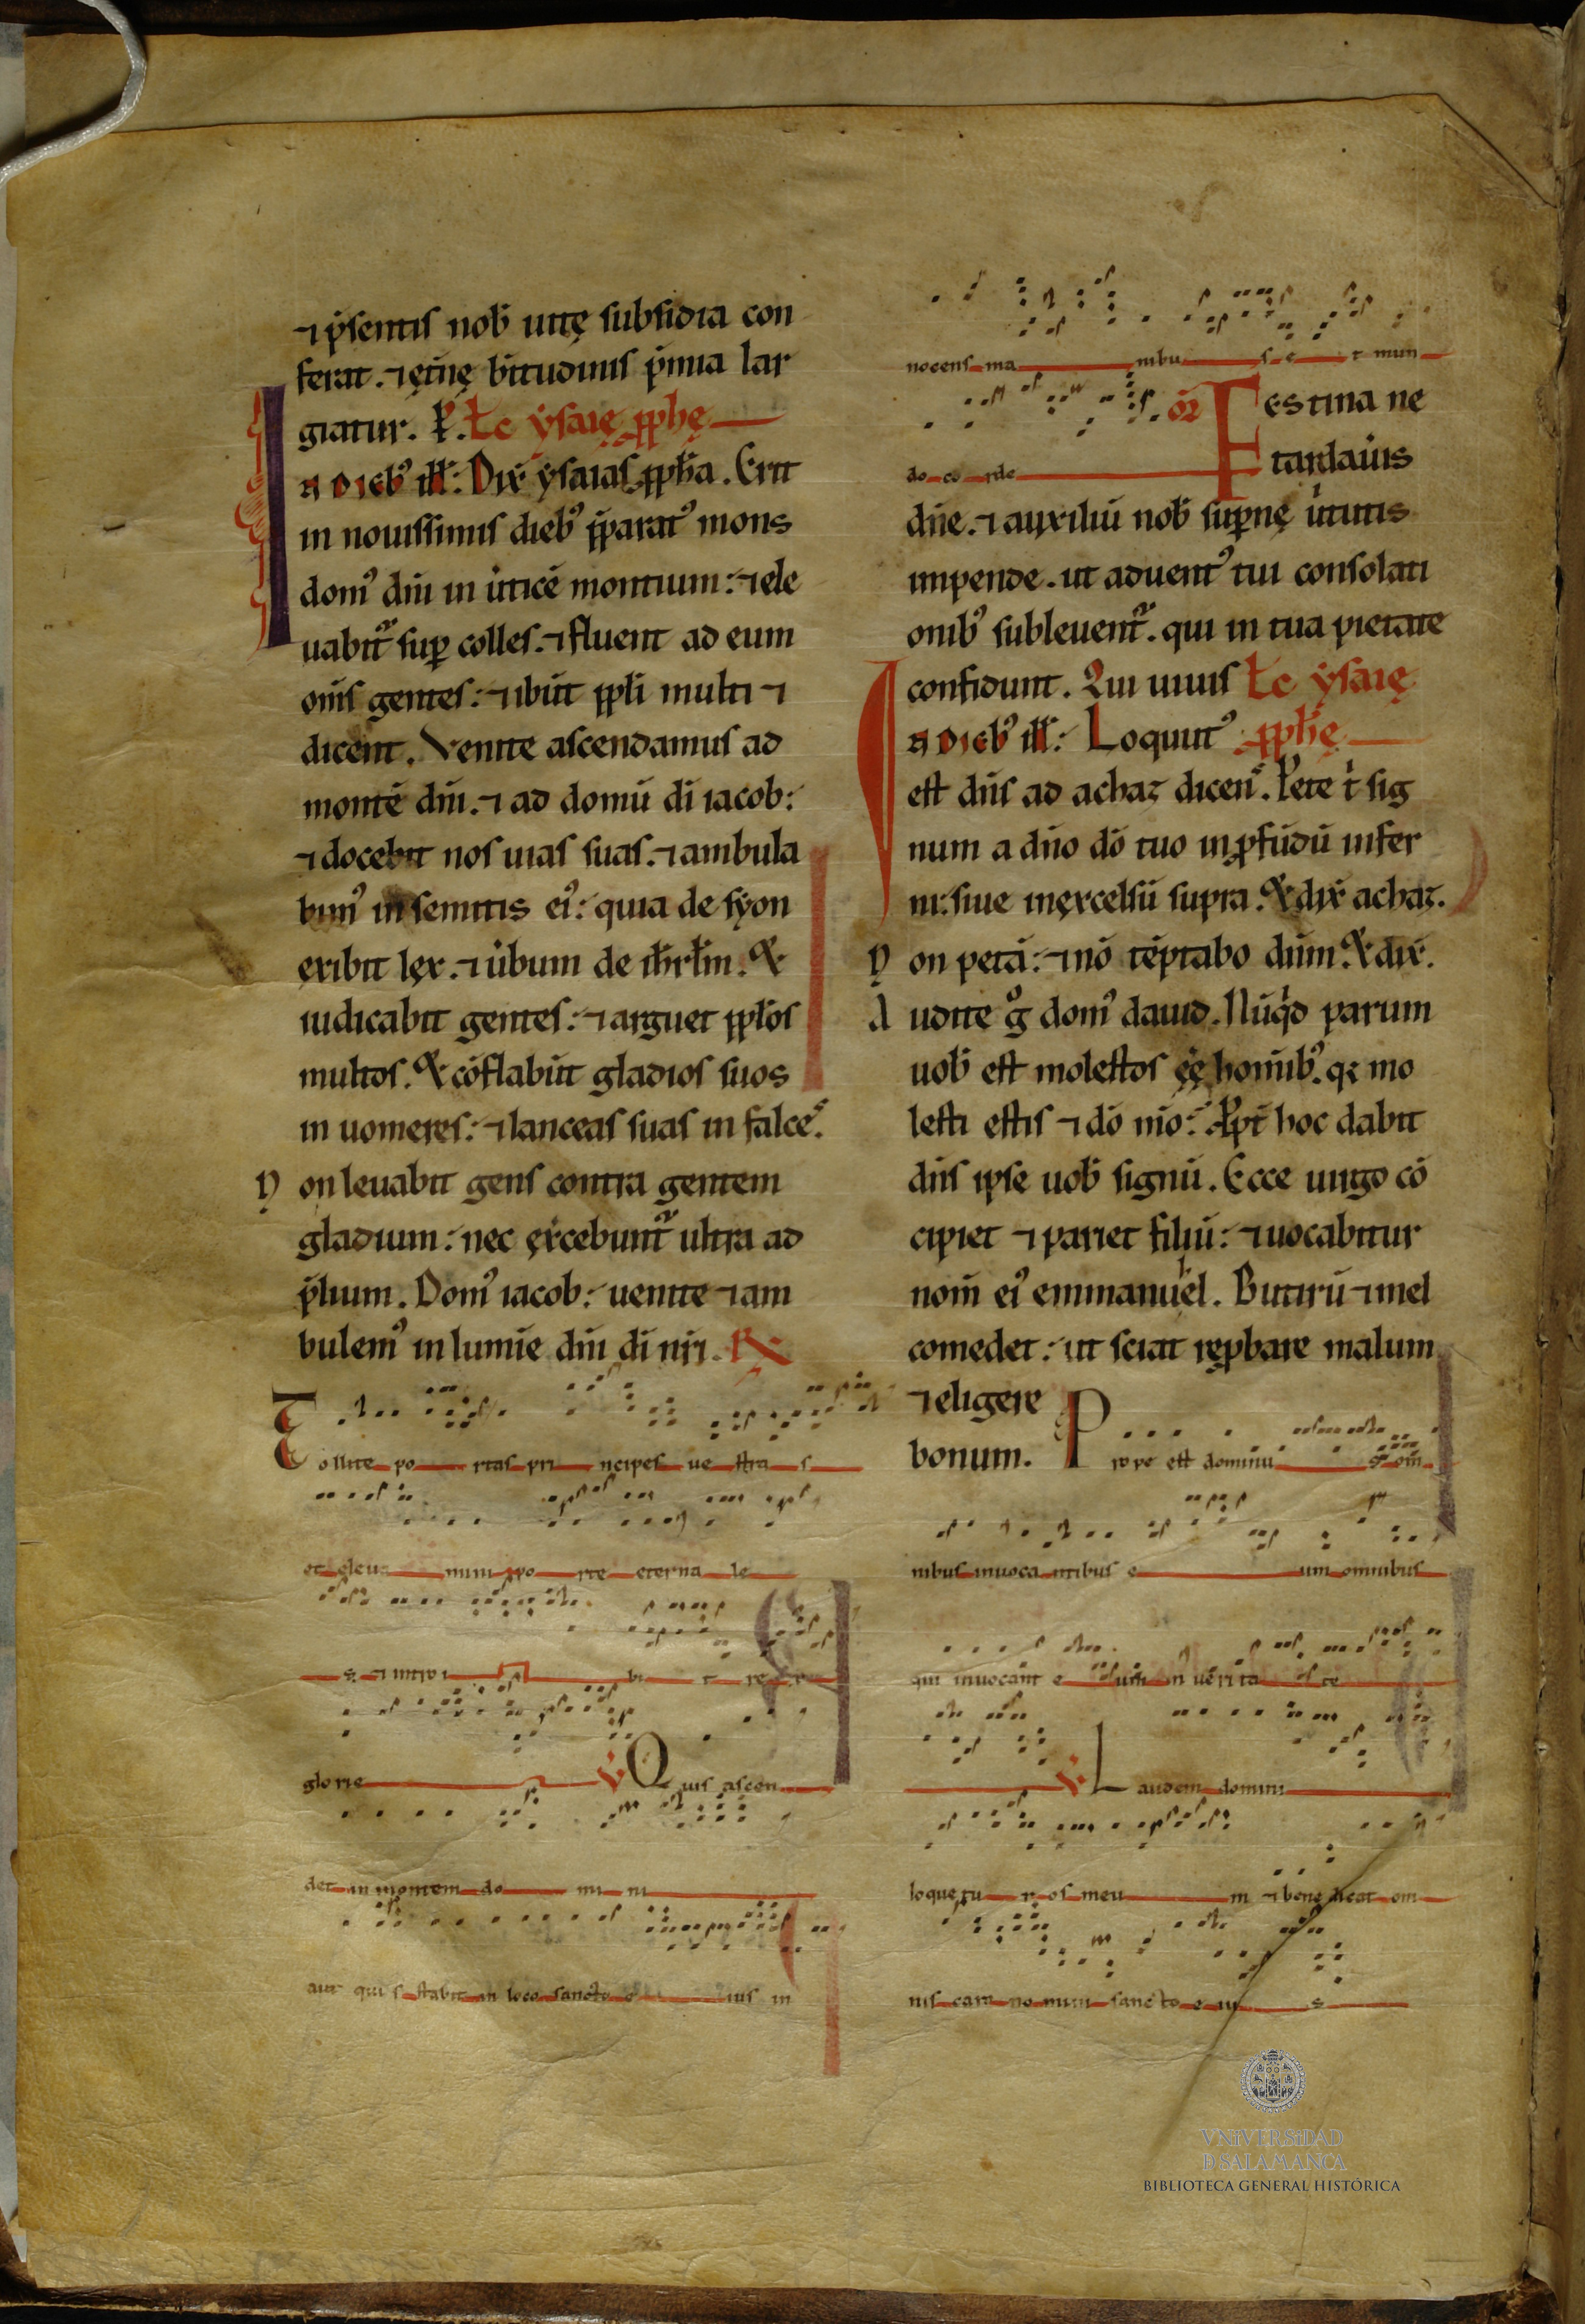 ⁊ p̄sentis nob̄ uitę subsidia con
ferat. ⁊ ęt̄nę b̄titudinis p̄mia lar
giatur. P̄. Lc̄ ẏsaię ꝓph̄ę
IN DIEBꝰ ill̄: Dix̄ ẏsaias ꝓph̄a. Erit
in nouissimis diebꝰ p̄paratꝰ mons
domꝰ dn̄i in u̇ticē montium: ⁊ ele
uabit᷑ suꝑ colles. ⁊ fluent ad eum
om̄s gentes: ⁊ ibūt ppl̄i multi ⁊
dicent. Venite ascendamus ad
montē dn̄i. ⁊ ad domū dī iacob:
⁊ docebit nos uias suas. ⁊ ambula
bimꝰ in semitis eiꝰ: quia de syon
exibit lex. ⁊ u̇bum de ih̄rl̄m. Et
iudicabit gentes: ⁊ arguet ppl̄os
multos. Et cōflabūt gladios suos
in uomeres: ⁊ lanceas suas in falces.
N on leuabit gens contra gentem
gladium: nec exc̄ebunt᷑ ultra ad
p̄lium. Domꝰ iacob: uenite ⁊ am
bulemꝰ in lumīe dn̄i dī nr̄i. R̸
T ollite po rtas pri ncipes ue stra s
et eleua mini po rte eterna le
s ⁊ introi bi t re x
glorie V̸ Quis ascen
det in montem do mi ni
aut quis stabit in loco sancto e ius in
nocens ma nibu s e t mun
do co rde
Or̄ Festina ne
tardaūis
dn̄e. ⁊ auxiliū nob̄ suꝑnę u̇tutis
impende. ut aduentꝰ tui consolati
onibꝰ subleuent᷑. qui in tua pietate
confidunt. Qui uiuis Lc̄ ẏsaię
IN DIEBꝰ ill̄: Locutꝰ ꝓph̄ę
est dn̄s ad achaz dicens. Pete t̄ sig
num a dn̄o dō tuo in ꝓfūdū infer
ni: siue in excelsū supra. Et dix̄ achaz.
N on petā: ⁊ nō tēptabo dn̄m. Et dix̄.
A udite g̊ domꝰ dauid. Nūqͥd parum
uob̄ est molestos eē hominibꝰ. qꝛ mo
lesti estis ⁊ dō mō: Ppt̄ hoc dabit
dn̄s ipse uob̄ signū. Ecce uirgo cō
cipiet ⁊ pariet filiū: ⁊ uocabitur
nom̄ eiꝰ emmanuel. Butirū ⁊ mel
comedet: ut sciat reꝓbare malum
⁊ eligere
bonum. P rope est dominu s om̄
nibus inuoca ntibus e um omnibus
qui inuocant e um in uerita te
V̸ L audem domini
loquetu r os meu m ⁊ benedicat om
nis caro nomen sancto e iu s
VNiVERSiDAD
D SALAMANCA
BIBLIOTECA GENERAL HISTÓRICA